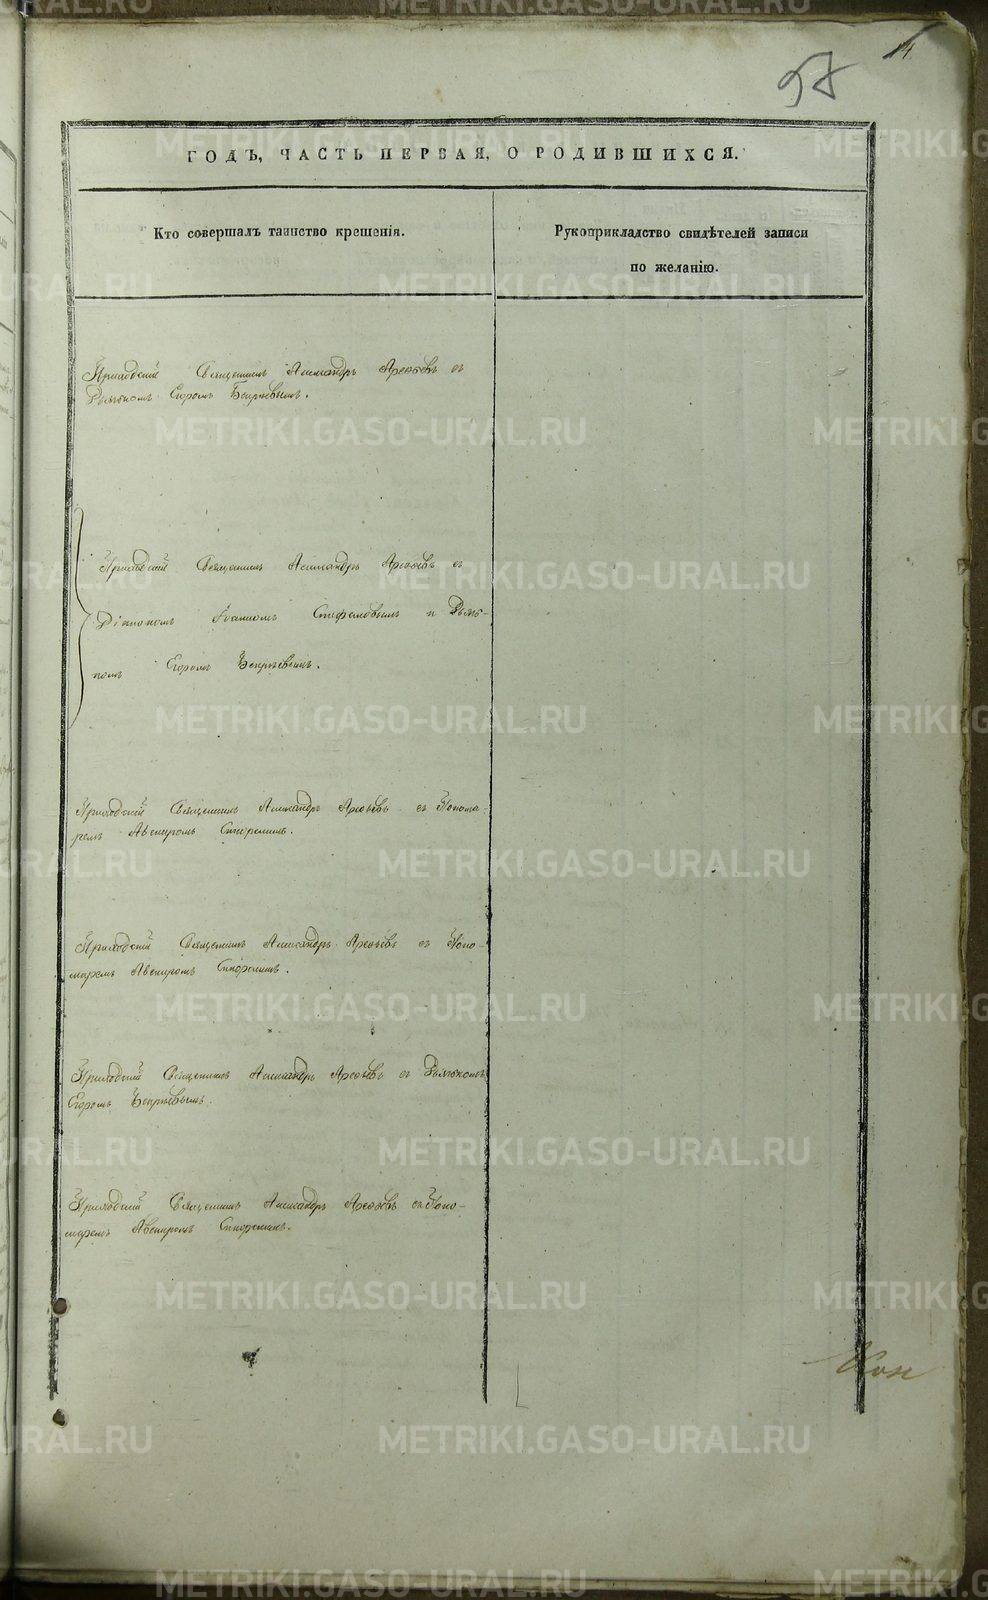 14
57
ГОДЪ, ЧАСТЬ ПЕРВАЯ, О РОДИВШИХСЯ.
Кто совершалъ таинство крещенія.
Рукоприкладство свидѣтелей записи
по желанію.
Приходскій Священникъ Александръ Арефьевъ съ
Дьячкомъ Егоромъ
Приходскій Священникъ Александръ Арефьевъ съ
Діакономъ Іоанномъ Стефановымъ и Дьяч-
комъ Егоромъ
Приходскій Священникъ Александръ Арефьевъ съ Понома-
ремъ Авениромъ
Приходскій Священникъ Александръ Арефьевъ съ Поно-
маремъ Авениромъ
Приходскій Священникъ Александръ Арефьевъ съ Дьячкомъ
Егоромъ
Приходскій Священникъ Александръ Арефьевъ съ Поно-
маремъ Авениромъ
METRIKI.GASO-URAL.RU